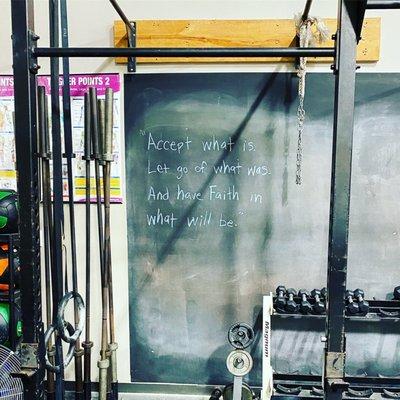 TRIGGER POINTS 2
"Accept what is.
Let go of what was.
And have Faith in
what will be."
Magnum